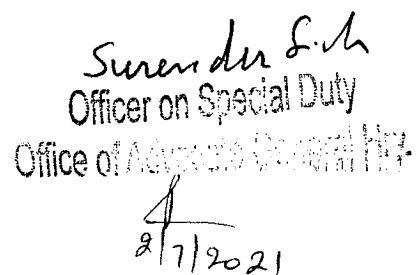 Surender
Officer on Special Duty
Office of Advocate General Hry.
2/7/2021